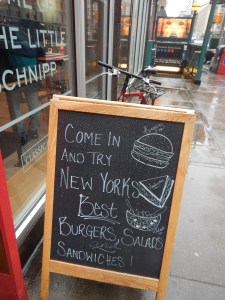 THE LITTLE
SCHNIPP
CLASSIC
COME IN
AND TRY
NEW YORKS
Best
BURGERS, SALADS
and
SANDWICHES!